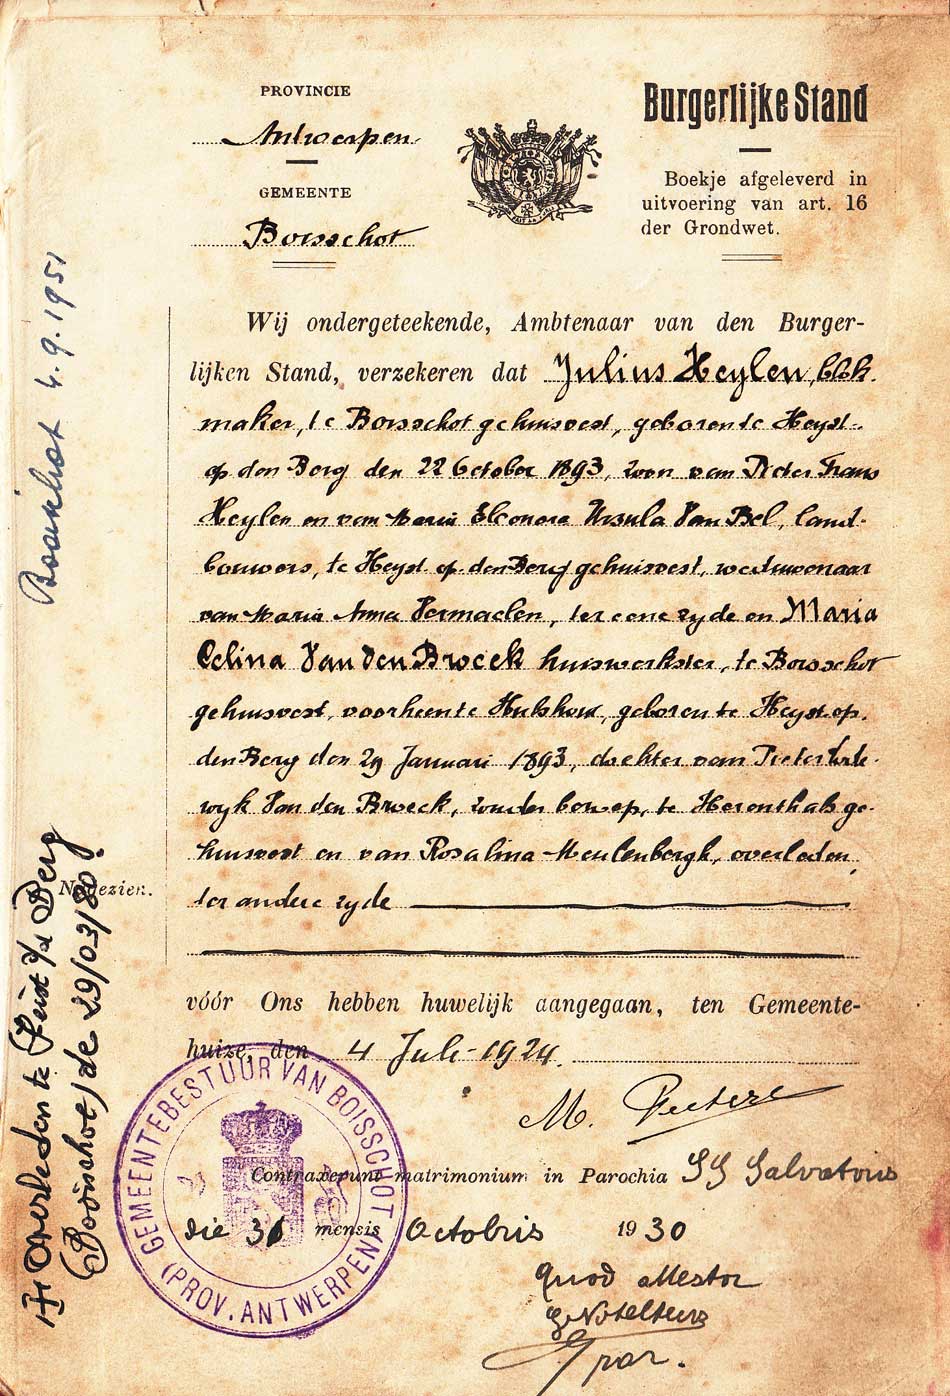 PROVINCIE
Antwerpen
GEMEENTE
Boisschot
Burgerlijke Stand
Boekje afgeleverd in
uitvoering van art. 16
der Grondwet.
Wij ondergeteekende, Ambtenaar van den Burger-
lijken Stand, verzekeren dat Julius Heylen, blok
maker, te Boisschot gehuisvest, geboren te Heyst-
op den Berg den 22 October 1893, zoon van Pieter Frans
Heylen en van Maria Eleonora Ursula Van Bel, land-
bouwers, te Heyst op den Berg gehuisvest, weduwenaar
van Maria Anna Vermaelen, ter eene zyde en Maria
Celina Van den Broeck huiswerkster, te Boisschot
gehuisvest, voorheen te Hulshout, geboren te Heyst op
den Berg den 29 Januari 1893, dochter van Pieter Lode-
wyk Van den Broeck, zonder beroep, te Herenthals ge-
huisvest en van Rosalina Meulenbergh, overleden
ter andere zyde
vóór Ons hebben huwelijk aangegaan, ten Gemeente-
huize, den 4 Juli 1924.
M. Peeters
Contraxerunt matrimonium in Parochia SS Salvatoris
die 31 mensis Octobris 1930
Quod attestor
par.
GEMEENTEBESTUUR VAN BOISSCHOT
(PROV. ANTWERPEN)
Boisschot 4.9.1951
Nagezien.
Overleden te Heist o/d Berg
(Booischot) de 29/03/80